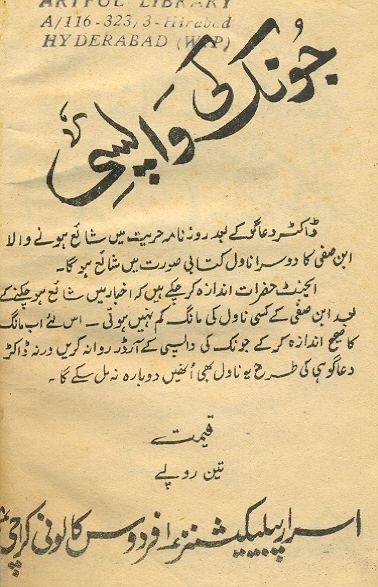 ARTFUL LIBRARY
A/116-323/3-Hirabad
HYDERABAD (W.P)
جونک کی واپسی
ڈاکٹر دعاگو کے بعد روزنامہ حریت میں شائع ہونے والا
ابن صفی کا دوسرا ناول کتابی صورت میں شائع ہوگا۔
ایجنٹ حضرات اندازہ کر چکے ہیں کہ اخبار میں شائع ہو چکنے کے
بعد ابن صفی کے کسی ناول کی مانگ کم نہیں ہوتی ۔ اس لئے اب مانگ
کا صحیح اندازہ کر کے جونک کی واپسی کے آرڈر روانہ کریں ورنہ ڈاکٹر
دعاگو ہی کی طرح یہ ناول بھی اُنھیں دوبارہ نہ مل سکے گا ۔
قیمت
تین روپے
اسرار پبلیکیشنز فردوس کالونی کراچی